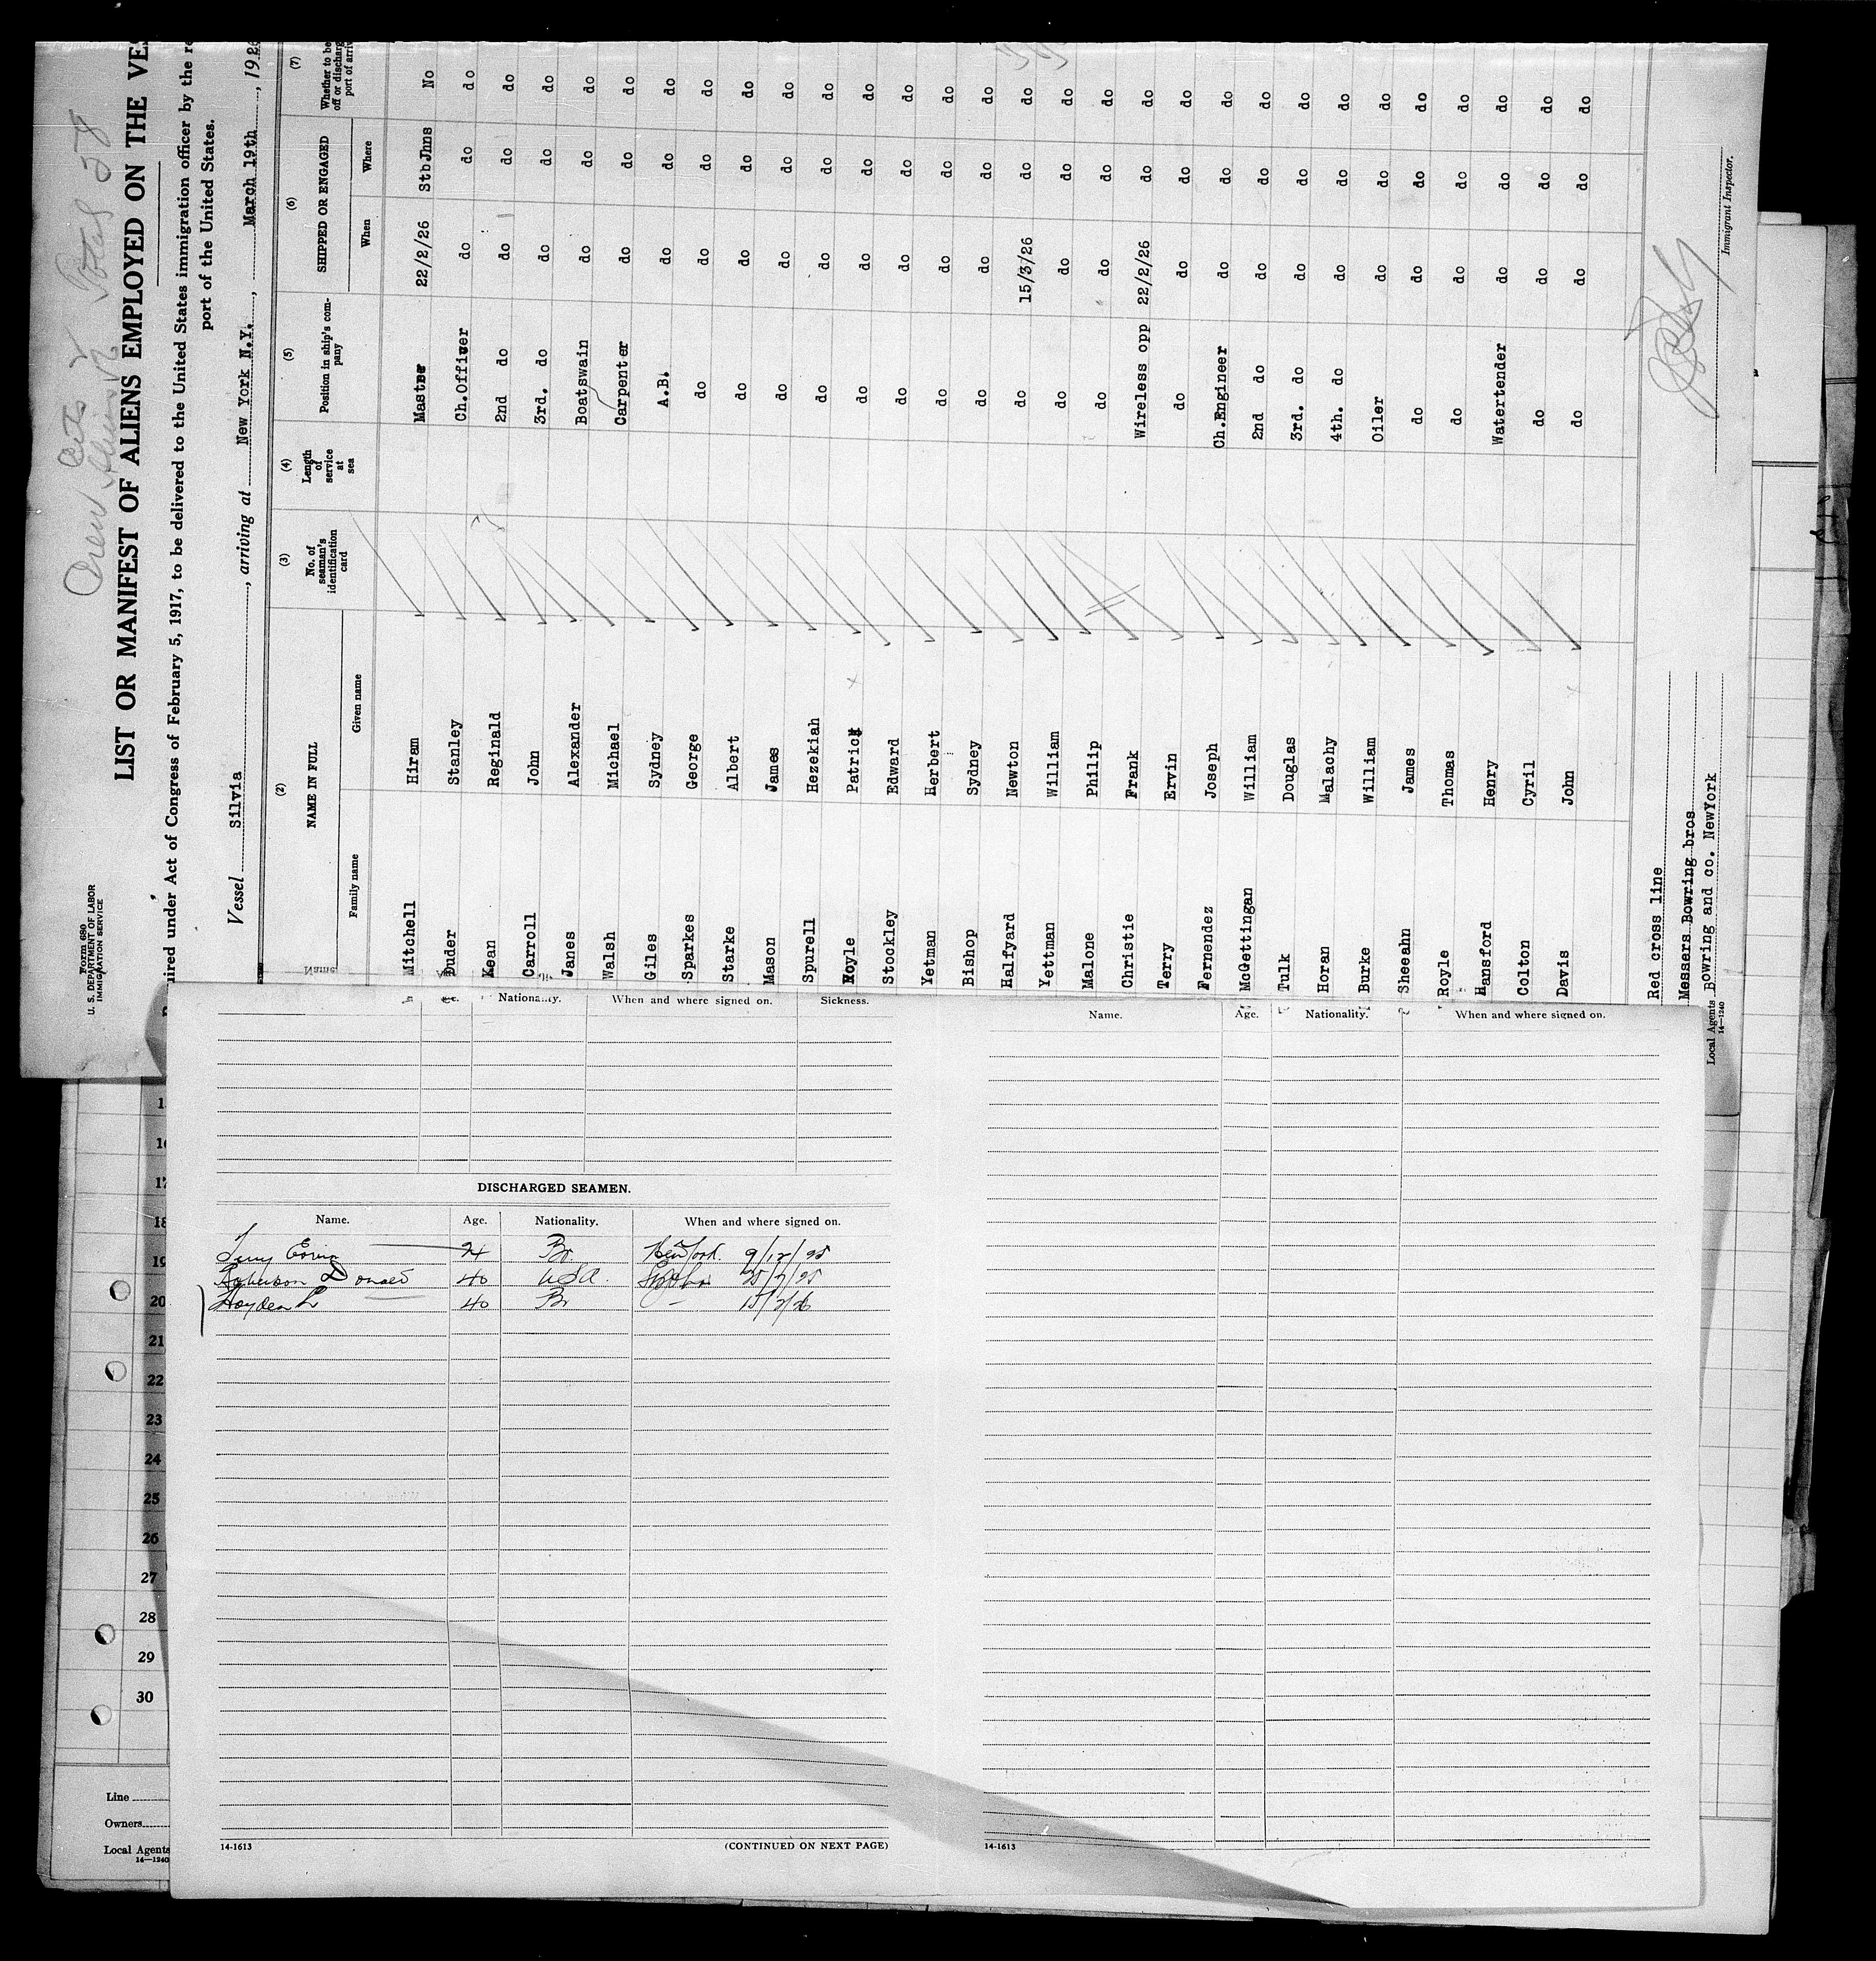 Form 680
U. S. DEPARTMENT OF LABOR
IMMIGRATION SERVICE
Crew
LIST OR MANIFEST OF ALIENS EMPLOYED ON THE VES
uired under Act of Congress of February 5, 1917, to be delivered to the United States immigration officer by the re
port of the United States.
Vessel Silvia, arriving at New York N.Y., March 19th, 192
(2) (3) (4) (5) (6) (7)
NAME IN FULL No. of seaman's identification card Length of service at sea Position in ship's company SHIPPED OR ENGAGED Whether to be off or discharg port of arriv
Family name Given name When Where
Mitchell Hiram Master 22/2/26 StbJhns No
Duder Stanley Ch.Officer do do do
Kean Reginald 2nd do do do do
Carroll John 3rd. do do do do
Janes Alexander Boatswain do do do
Walsh Michael Carpenter do do do
Giles Sydney A.B. do do do
Sparkes George do do do do
Starke Albert do do do do
Mason James do do do do
Spurell Hezekiah do do do do
Noyle Patrick do do do do
Stockley Edward do do do do
Yetman Herbert do do do do
Bishop Sydney do do do do
Halfyard Newton do 15/3/26 do do
Yettman William do do do do
Malone Philip do do do do
Christie Frank Wireless opp 22/2/26 do do
Terry Ervin do do do do
Fernendez Joseph Ch.Engineer do do do
McGettingan William 2nd do do do do
Tulk Douglas 3rd. do do do do
Horan Malachy 4th. do do do do
Burke William Oiler do do do
Sheeahn James do do do do
Royle Thomas do do do do
Hansford Henry Watertender do do do
Colton Cyril do do do do
Davis John do do do do
Red cross line
Messers Bowring bros
Local Agents Bowring and co. NewYork
14—1240
Immigrant Inspector.
Nationality. When and where signed on. Sickness.
DISCHARGED SEAMEN.
Name. Age. Nationality. When and where signed on.
Terry Ervin 24 Br New York. 9/12/25
Donald 40 USA.
Hayden 40 Br - 15/2/26
14-1613 (CONTINUED ON NEXT PAGE)
Name. Age. Nationality. When and where signed on.
14-1613
16
17
18
19
20
21
22
23
24
25
26
27
28
29
30
Line
Owners
Local Agents
14—1240